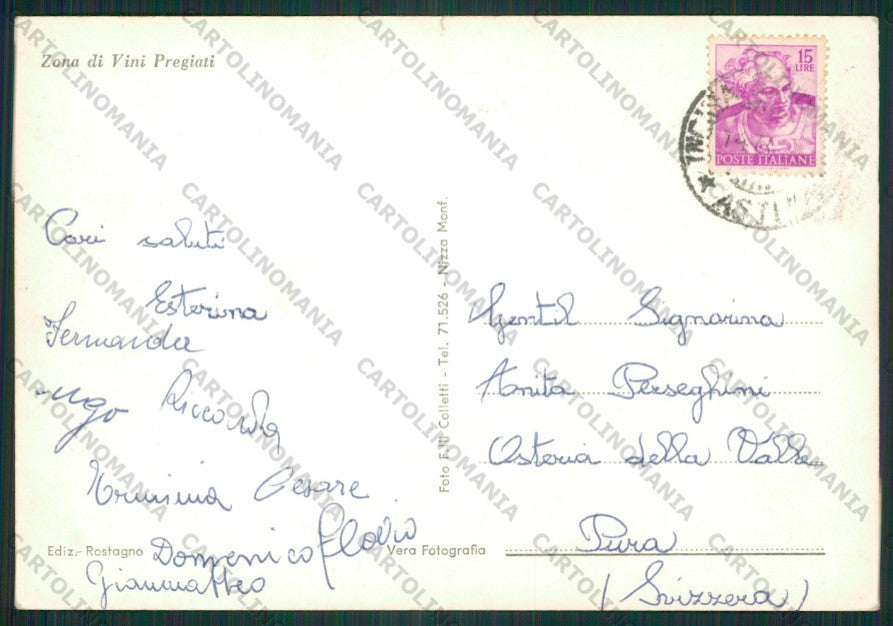 Zona di Vini Pregiati
15
LIRE
POSTE ITALIANE
★ ASTI
Cari saluti
Esterina
Fernanda
Ugo Riccarda
Erminia Cesare
Domenico Flavio
Gianmatteo
Ediz. Rostagno
Vera Fotografia
Foto F.lli Colletti - Tel. 71.526 - Nizza Monf.
Gentil Signorina
Anita Perseghini
Osteria della Valle
Pura
(Svizzera)
CARTOLINOMANIA